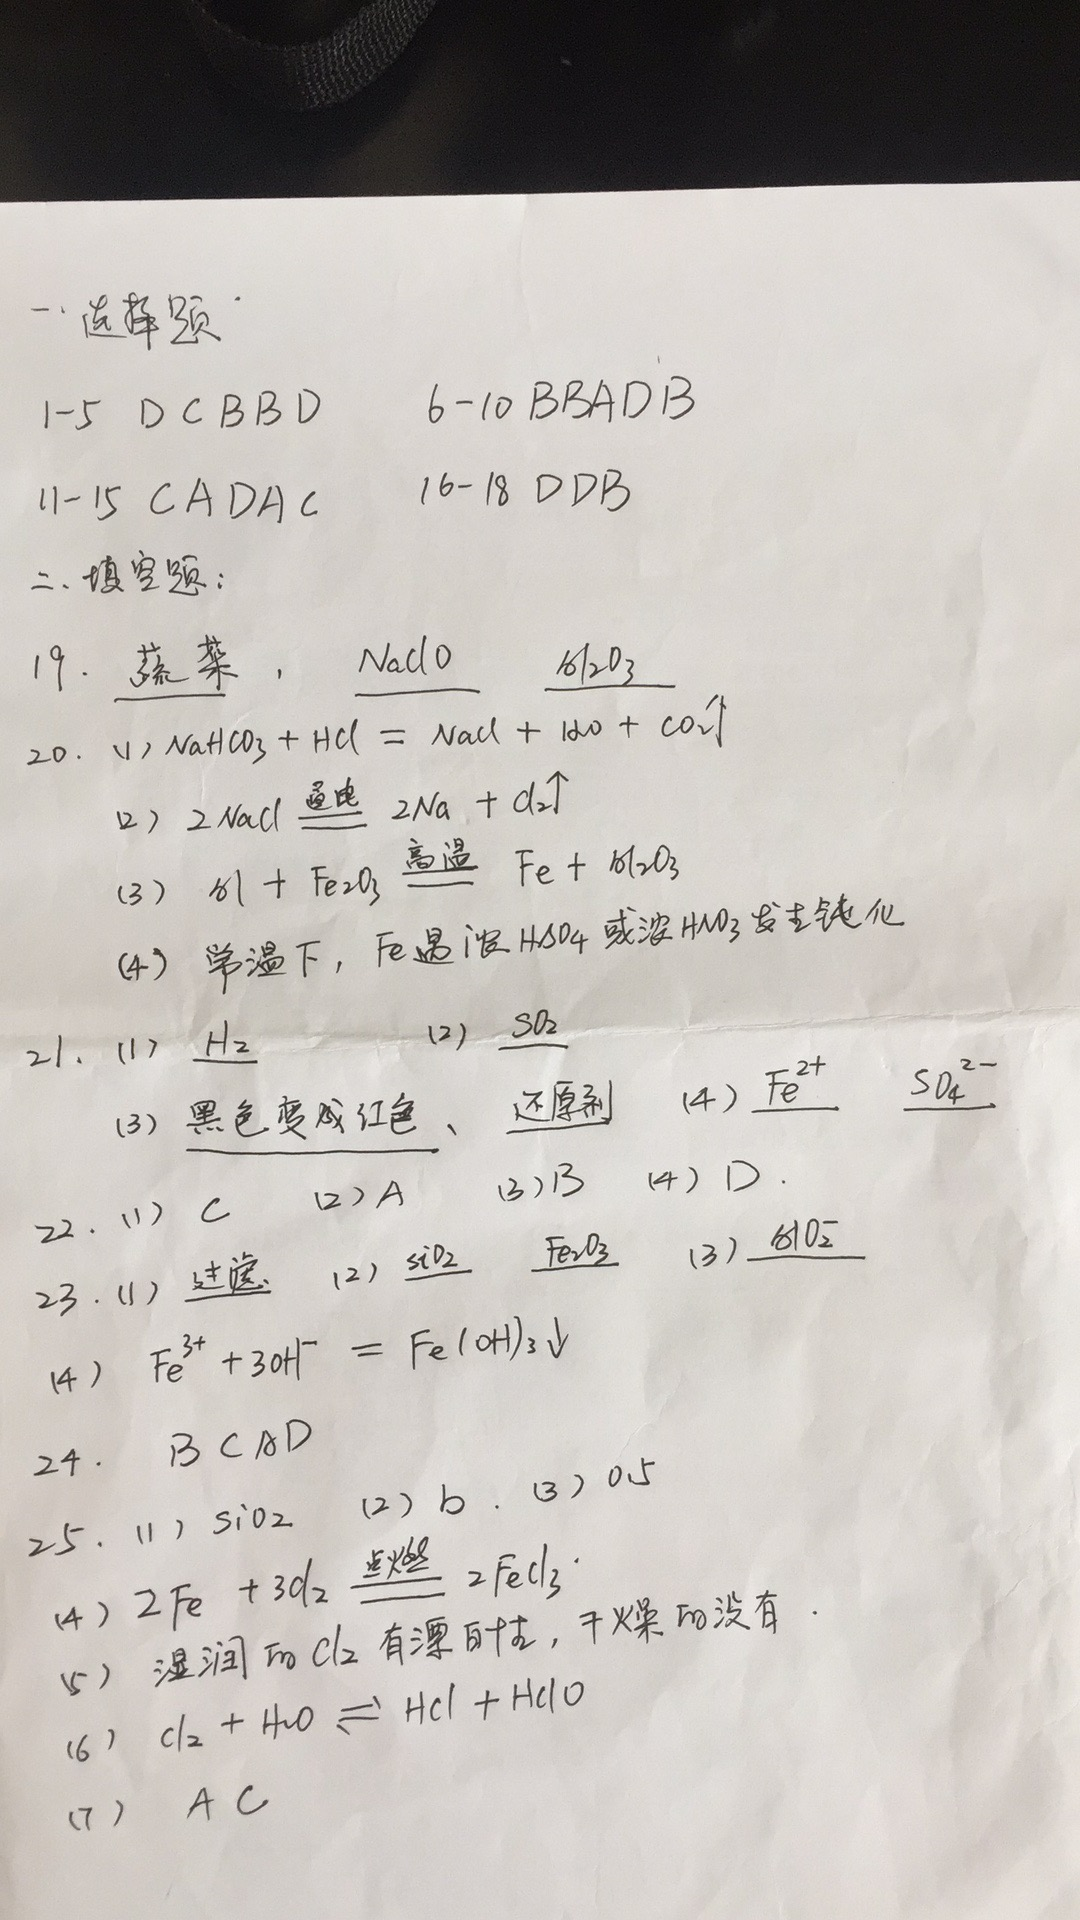 一. 选择题.
1-5 DCBBD 6-10 BBADB
11-15 CADAC 16-18 DDB
二、填空题:
19. 蔬菜, NaClO Al2O3
20. (1) NaHCO3 + HCl = NaCl + H2O + CO2↑
(2) 2NaCl 通电 2Na + Cl2↑
(3) Al + Fe2O3 高温 Fe + Al2O3
(4) 常温下, Fe遇浓H2SO4或浓HNO3发生钝化
21. (1) H2 (2) SO2
(3) 黑色变成红色、还原剂 (4) Fe2+ SO4 2-
22. (1) C (2) A (3) B (4) D.
23. (1) 过滤 (2) SiO2 Fe2O3 (3) AlO2-
(4) Fe3+ + 3OH- = Fe(OH)3↓
24. BCAD
25. (1) SiO2 (2) b. (3) 0.5
(4) 2Fe + 3Cl2 点燃 2FeCl3.
(5) 湿润的Cl2有漂白性, 干燥的没有.
(6) Cl2 + H2O ⇌ HCl + HClO
(7) AC